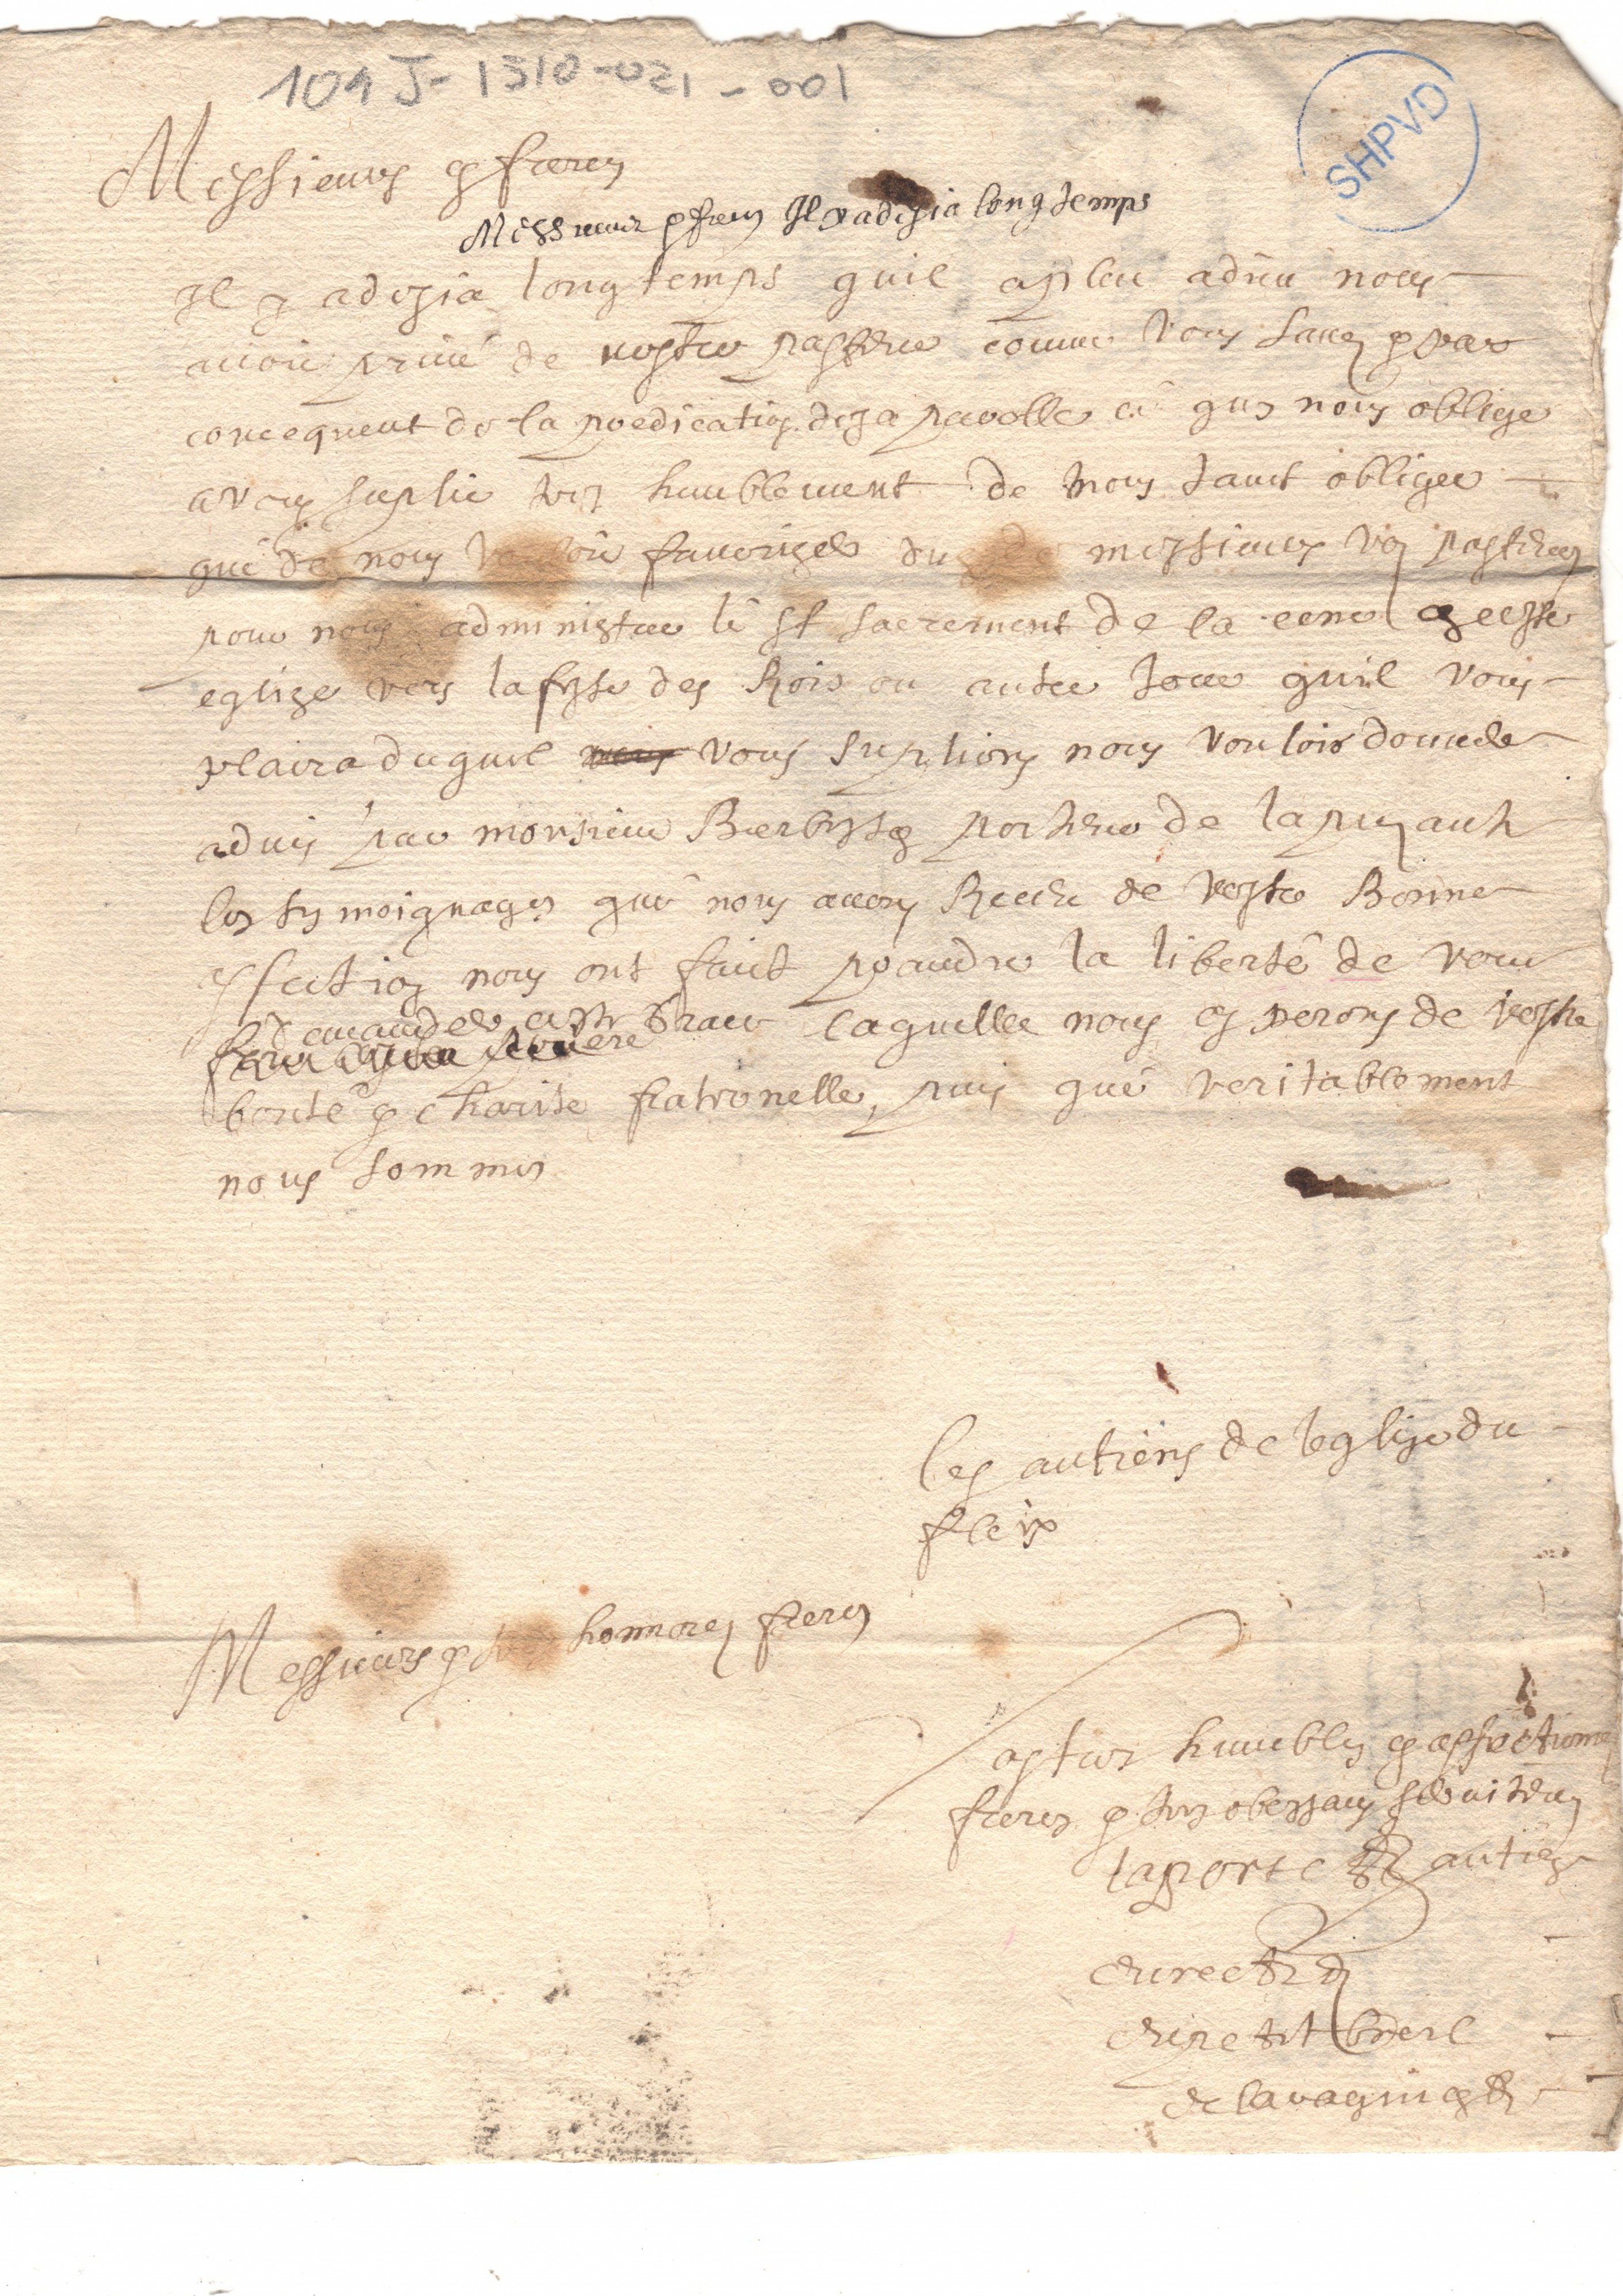 101 J-1310-021-001
SHPVD
Messieurs & freres
Messieurs & freres Il y a desia long temps
Il y a desia long temps quil a pleu a dieu nous
avoir privé de nostre pasteur comme vous savez & par
concequent de la predication de sa parolle ce qui nous oblige
a vous suplier tres humblement de nous tant obliger
que de nous vouloir favorizer du messieurs vos pasteurs
pour nous administrer le st sacrement de la cene ceste
eglize vers la feste des Rois ou autre jour quil vous
plaira duquel vous suplions nous vouloir donner
advis par monsieur porteur de la presante
les tesmoignages que nous avons Receu de vostre Bonne
affection nous ont faict prandre la liberté de vous
demander ceste grace laquelle nous esperons de vostre
bonté & charité fraternelle, puis que veritablement
nous sommes
les antiens de leglize du
fleix
Messieurs & tres honnorez freres
vos tres humbles & affectionnes
freres & tres obeissans serviteurs
laporte antien